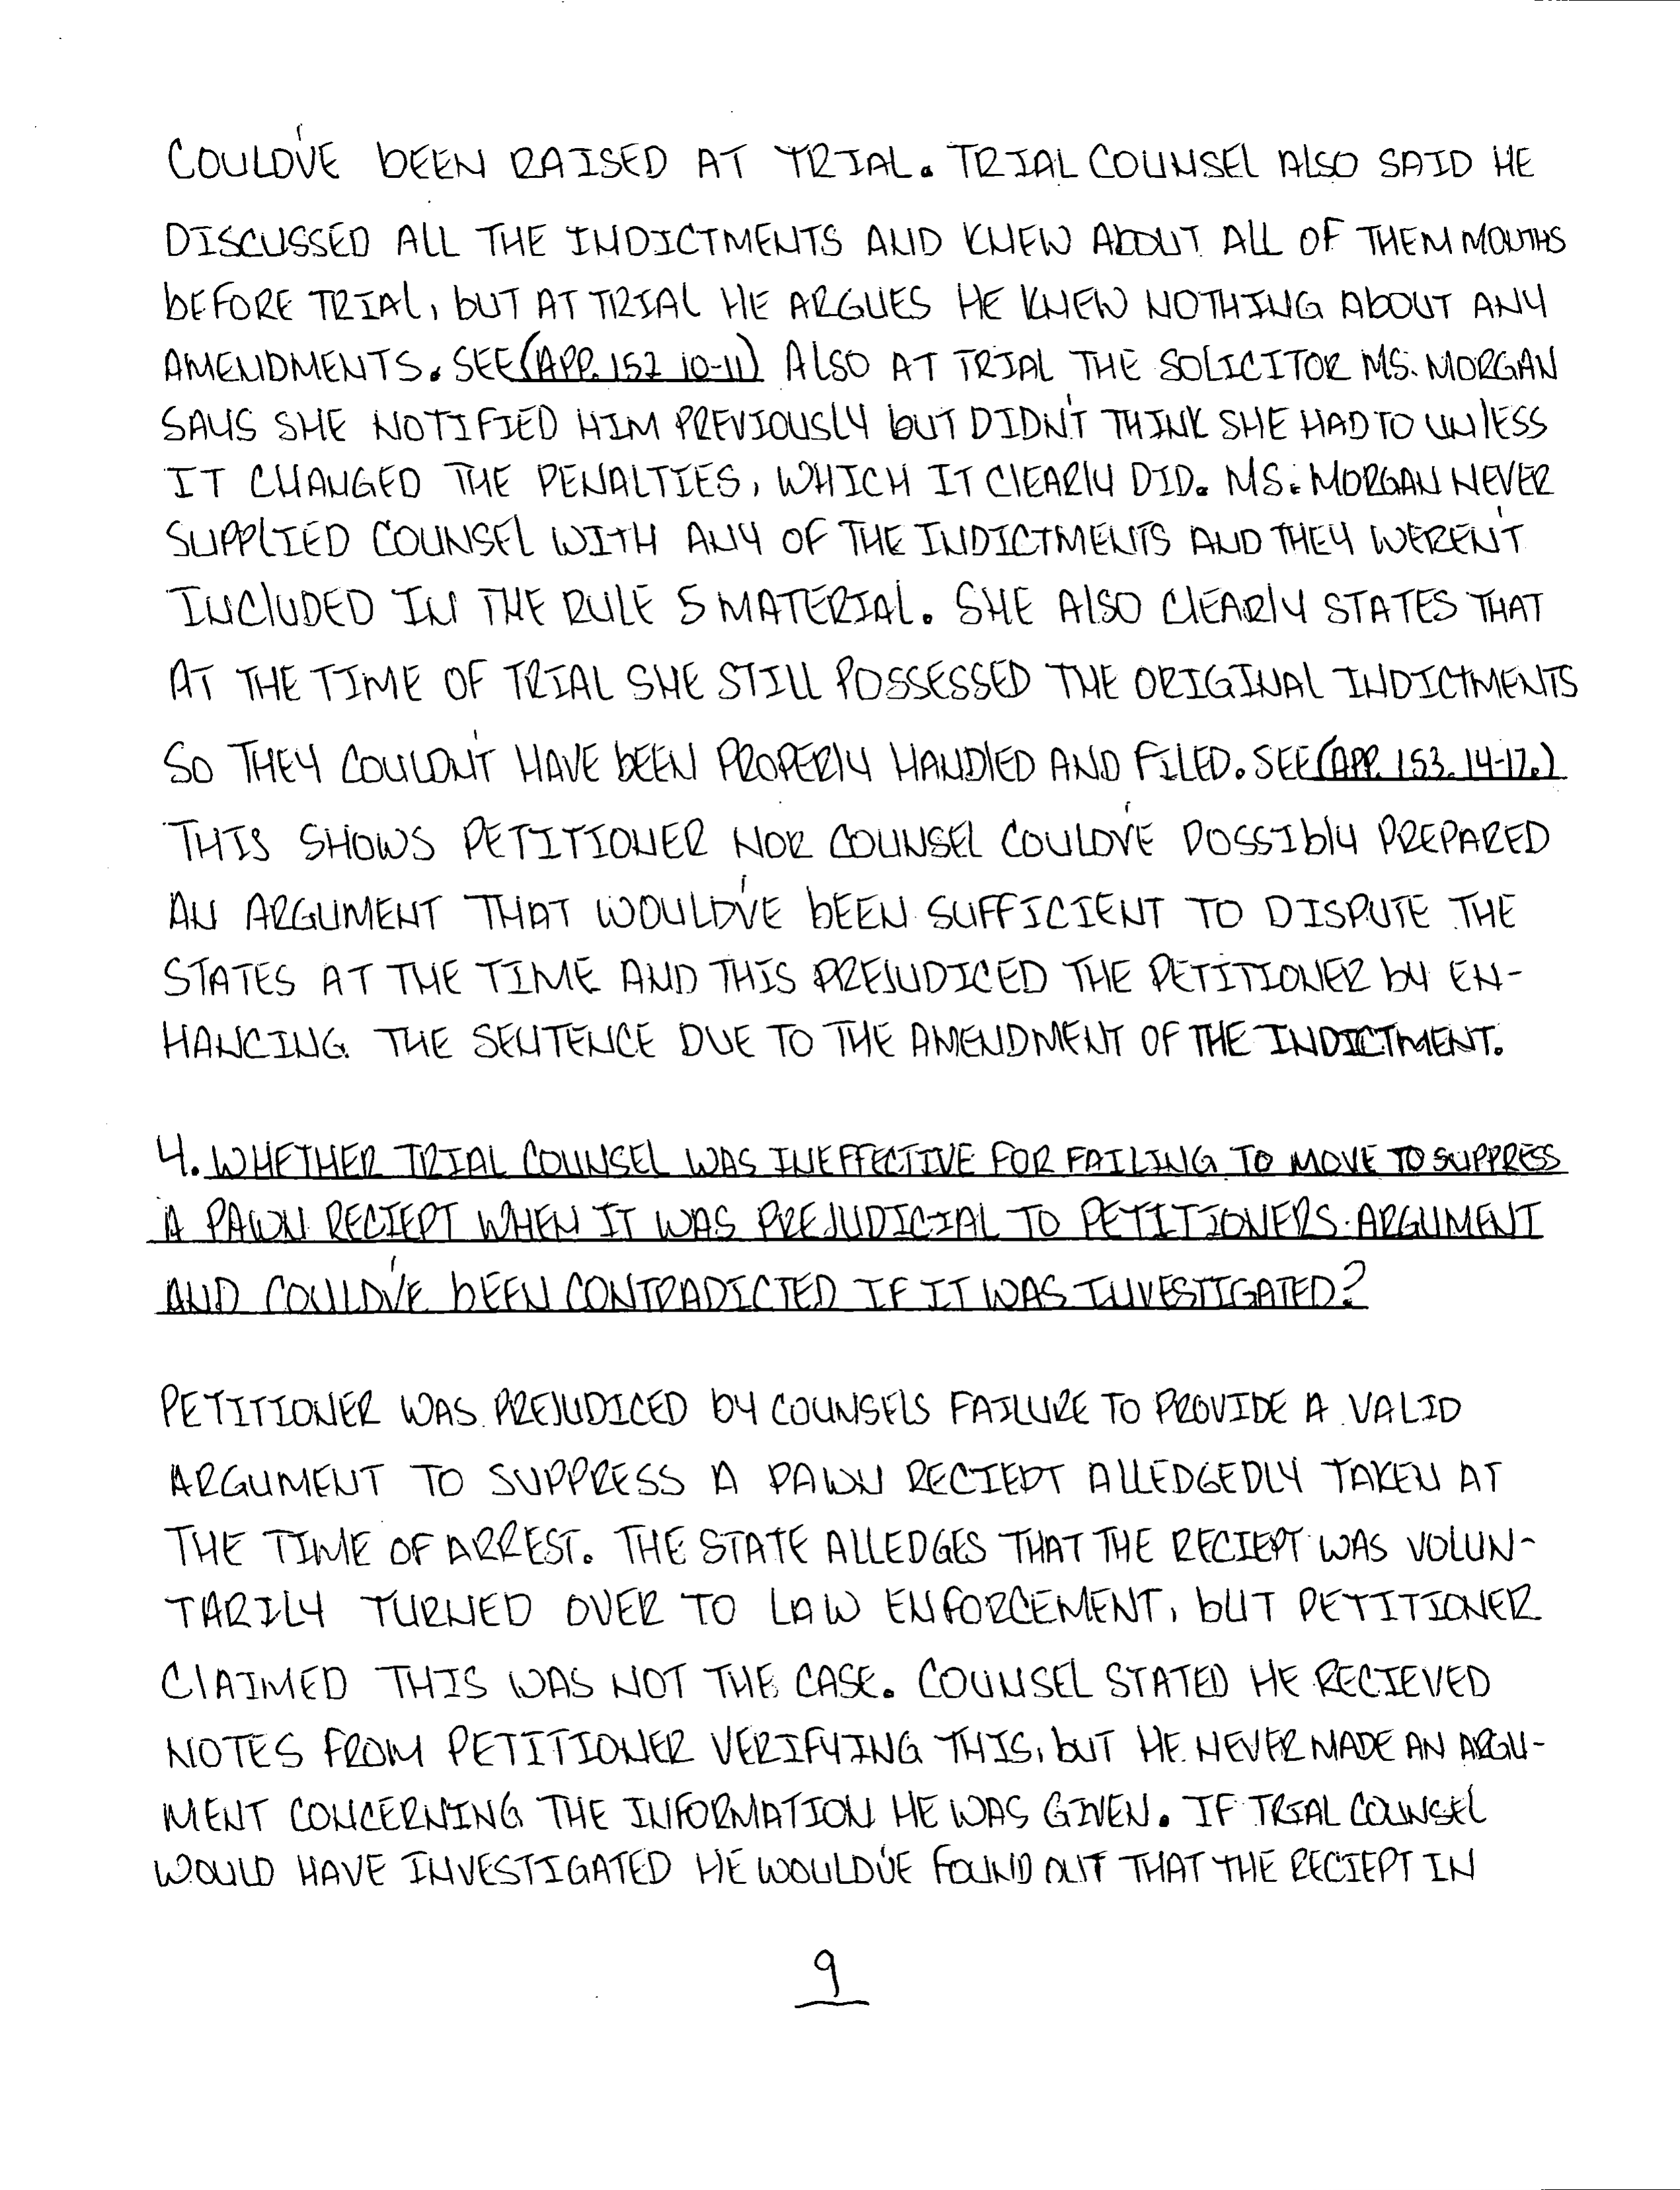 COULD'VE BEEN RAISED AT TRIAL. TRIAL COUNSEL ALSO SAID HE
DISCUSSED ALL THE INDICTMENTS AND KNEW ABOUT ALL OF THEM MONTHS
BEFORE TRIAL, BUT AT TRIAL HE ARGUES HE KNEW NOTHING ABOUT ANY
AMENDMENTS. SEE (APP. 152 10-11) ALSO AT TRIAL THE SOLICITOR MS. MORGAN
SAYS SHE NOTIFIED HIM PREVIOUSLY BUT DIDN'T THINK SHE HAD TO UNLESS
IT CHANGED THE PENALTIES, WHICH IT CLEARLY DID. MS. MORGAN NEVER
SUPPLIED COUNSEL WITH ANY OF THE INDICTMENTS AND THEY WEREN'T
INCLUDED IN THE RULE 5 MATERIAL. SHE ALSO CLEARLY STATES THAT
AT THE TIME OF TRIAL SHE STILL POSSESSED THE ORIGINAL INDICTMENTS
SO THEY COULDN'T HAVE BEEN PROPERLY HANDLED AND FILED. SEE (APP. 153. 14-17.)
THIS SHOWS PETITIONER NOR COUNSEL COULD'VE POSSIBLY PREPARED
AN ARGUMENT THAT WOULD'VE BEEN SUFFICIENT TO DISPUTE THE
STATES AT THE TIME AND THIS PREJUDICED THE PETITIONER BY EN-
HANCING THE SENTENCE DUE TO THE AMENDMENT OF THE INDICTMENT.
4. WHETHER TRIAL COUNSEL WAS INEFFECTIVE FOR FAILING TO MOVE TO SUPPRESS
A PAWN RECIEPT WHEN IT WAS PREJUDICIAL TO PETITIONERS ARGUMENT
AND COULD'VE BEEN CONTRADICTED IF IT WAS INVESTIGATED?
PETITIONER WAS PREJUDICED BY COUNSELS FAILURE TO PROVIDE A VALID
ARGUMENT TO SUPPRESS A PAWN RECIEPT ALLEDGEDLY TAKEN AT
THE TIME OF ARREST. THE STATE ALLEDGES THAT THE RECIEPT WAS VOLUN-
TARILY TURNED OVER TO LAW ENFORCEMENT, BUT PETITIONER
CLAIMED THIS WAS NOT THE CASE. COUNSEL STATED HE RECIEVED
NOTES FROM PETITIONER VERIFYING THIS, BUT HE NEVER MADE AN ARGU-
MENT CONCERNING THE INFORMATION HE WAS GIVEN. IF TRIAL COUNSEL
WOULD HAVE INVESTIGATED HE WOULD'VE FOUND OUT THAT THE RECIEPT IN
9